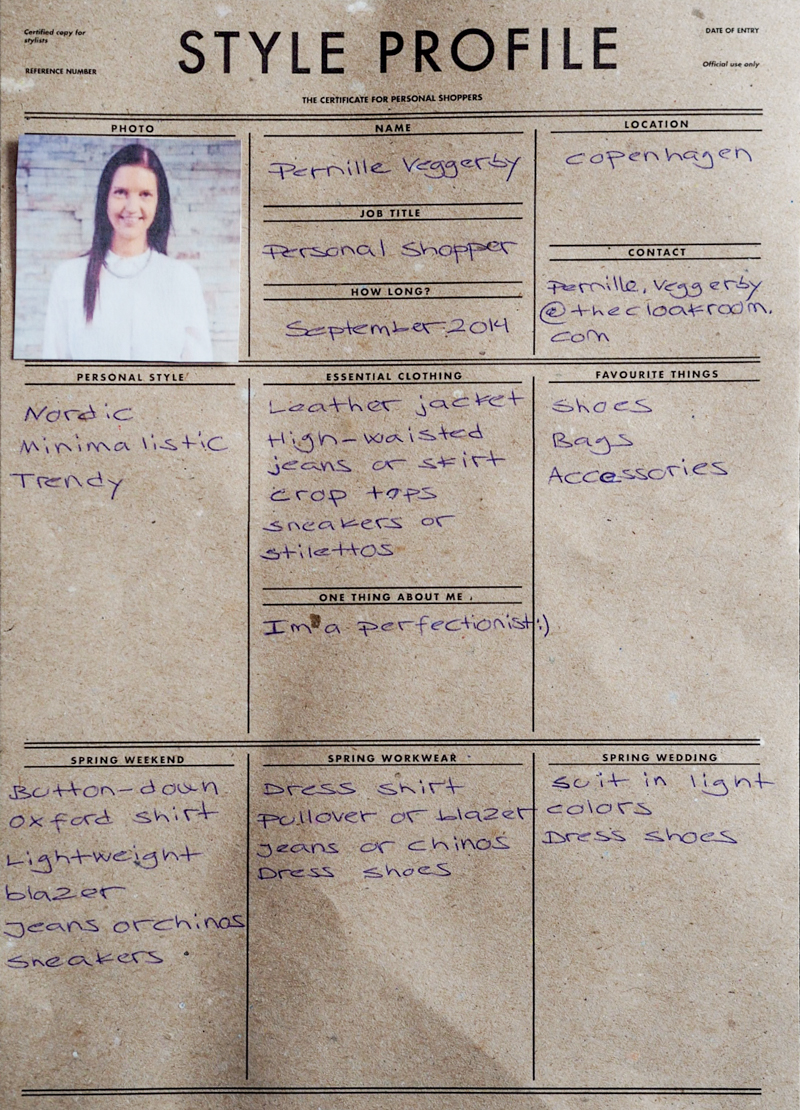 Certified copy for
stylists
REFERENCE NUMBER
STYLE PROFILE
THE CERTIFICATE FOR PERSONAL SHOPPERS
DATE OF ENTRY
Official use only
PHOTO
NAME
Pernille Veggerby
JOB TITLE
Personal shopper
HOW LONG?
September 2014
LOCATION
Copenhagen
CONTACT
Pernille.Veggerby
@thecloakroom.
com
PERSONAL STYLE
Nordic
Minimalistic
Trendy
ESSENTIAL CLOTHING
Leather jacket
High-waisted
jeans or skirt
Crop tops
sneakers or
stilettos
ONE THING ABOUT ME
I'm a perfectionist :)
FAVOURITE THINGS
Shoes
Bags
Accessories
SPRING WEEKEND
Button-down
oxford shirt
Lightweight
blazer
Jeans or chinos
Sneakers
SPRING WORKWEAR
Dress shirt
Pullover or blazer
Jeans or chinos
Dress shoes
SPRING WEDDING
Suit in light
colors
Dress shoes